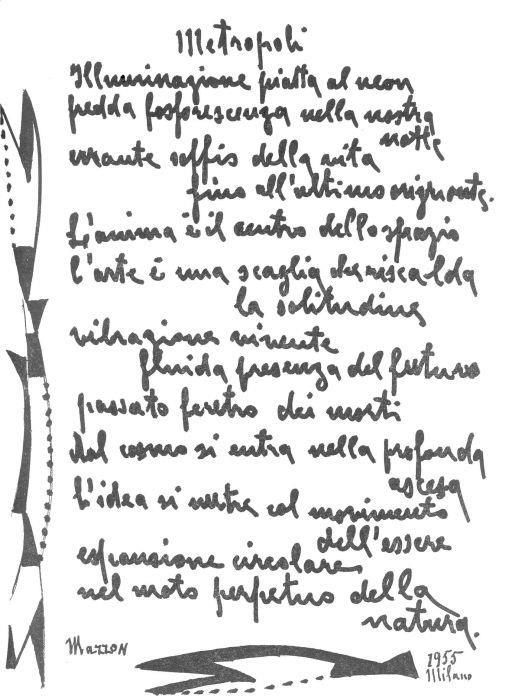 Metropoli
Illuminazione piatta al neon
fredda fosforescenza nella nostra
notte
errante soffio della vita
fino all'ultimo orizzonte.
L'anima è il centro dello spazio
l'arte è una scaglia che riscalda
la solitudine
vibrazione vivente
fluida presenza del futuro
passato feretro dei morti
dal cosmo si entra nella profonda
ascesa
L'idea si nutre col movimento
dell'essere
espansione circolare
nel moto perpetuo della
natura.
Mazzon
1955
Milano